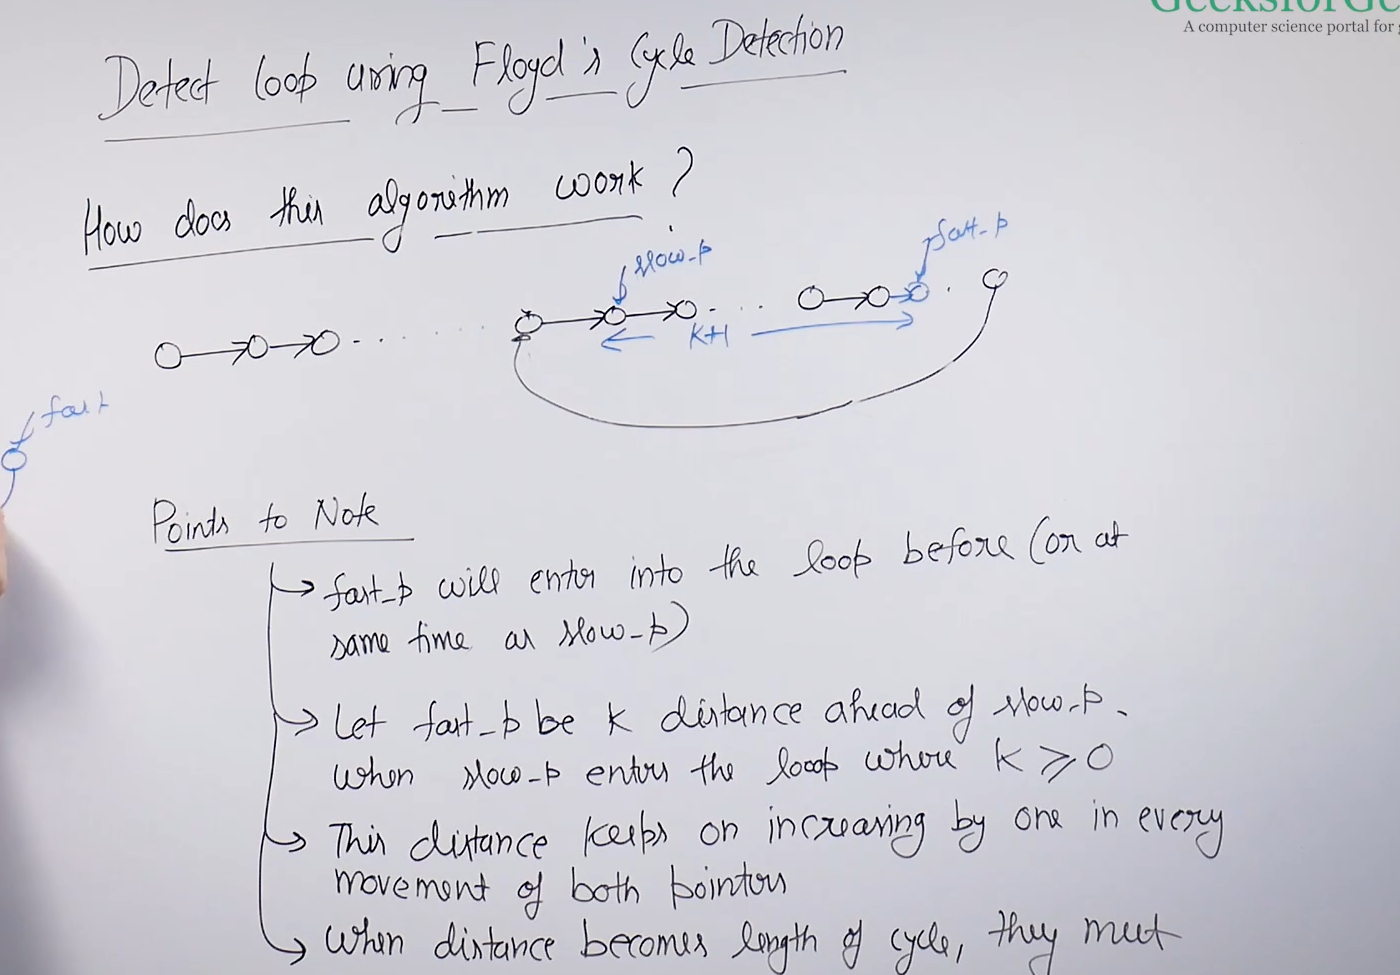 GeeksforGe
A computer science portal for g
Detect loop using Floyd's Cycle Detection
How does this algorithm work ?
slow_p
fast_p
K+1
fast
Points to Note
fast_p will enter into the loop before (or at
same time as slow_p)
Let fast_p be K distance ahead of slow_p.
when slow_p enters the loop where K ≥ 0
This distance keeps on increasing by one in every
movement of both pointers
When distance becomes length of cycle, they meet